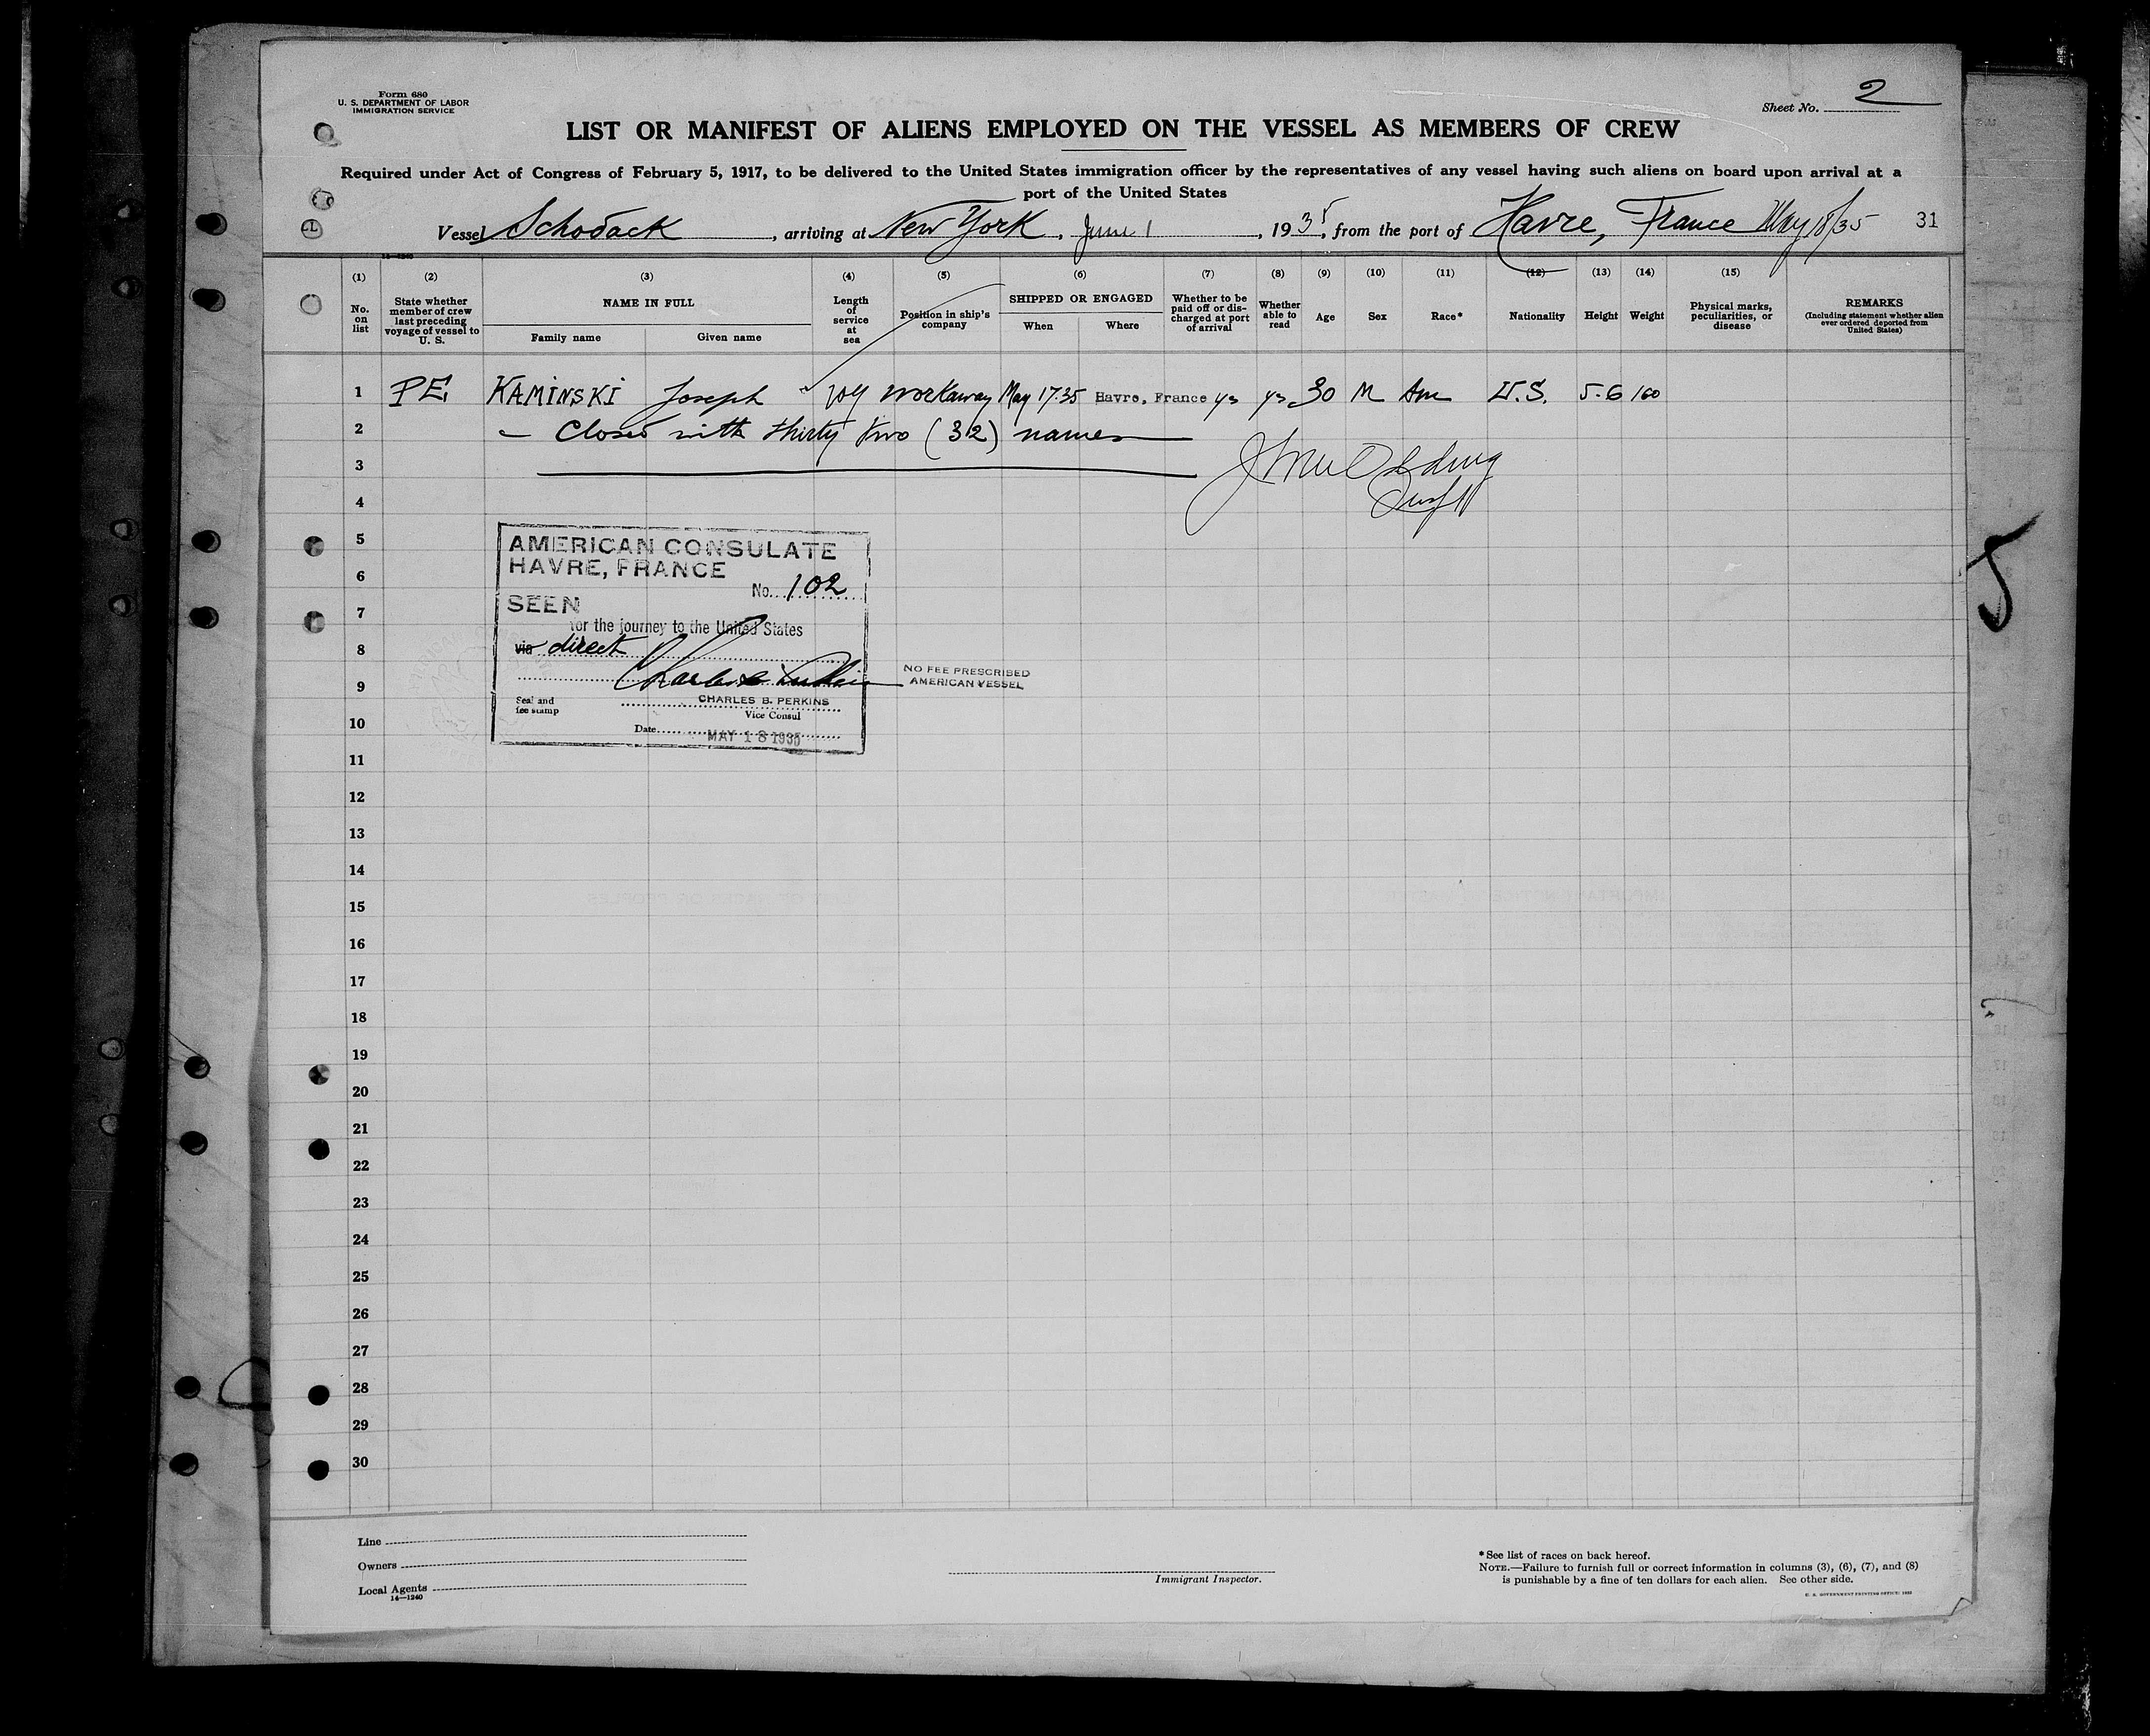 Form 680
U. S. DEPARTMENT OF LABOR
IMMIGRATION SERVICE
Sheet No. 2
LIST OR MANIFEST OF ALIENS EMPLOYED ON THE VESSEL AS MEMBERS OF CREW
Required under Act of Congress of February 5, 1917, to be delivered to the United States immigration officer by the representatives of any vessel having such aliens on board upon arrival at a
port of the United States
Vessel Schodack, arriving at New York, June 1, 1935, from the port of Havre, France May 18/35 31
14—1240
(1) (2) (3) (4) (5) (6) (7) (8) (9) (10) (11) (12) (13) (14) (15)
No. on list
State whether member of crew last preceding voyage of vessel to U. S.
NAME IN FULL
Family name
Given name
Length of service at sea
Position in ship's company
SHIPPED OR ENGAGED
When
Where
Whether to be paid off or discharged at port of arrival
Whether able to read
Age
Sex
Race*
Nationality
Height
Weight
Physical marks, peculiarities, or disease
REMARKS
(Including statement whether alien ever ordered deported from United States)
1 P.E. KAMINSKI Joseph workaway May 17.35 Havre, France ys ys 30 M Am U.S. 5-6 160
2 Closed with thirty two (32) names
3
4
5
6
7
8
9
10
11
12
13
14
15
16
17
18
19
20
21
22
23
24
25
26
27
28
29
30
AMERICAN CONSULATE
HAVRE, FRANCE
No. 102
SEEN
for the journey to the United States
via direct
CHARLES B. PERKINS
Seal and
fee stamp
Vice Consul
Date MAY 18 1935
NO FEE PRESCRIBED
AMERICAN VESSEL
5
Line
Owners
Local Agents
14—1240
Immigrant Inspector.
*See list of races on back hereof.
NOTE.—Failure to furnish full or correct information in columns (3), (6), (7), and (8)
is punishable by a fine of ten dollars for each alien. See other side.